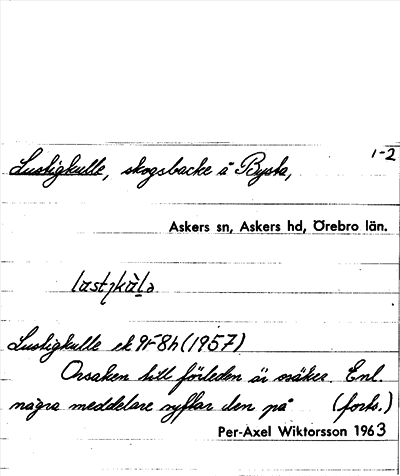 1-2
Lustigkulle, skogsbacke å Bysta,
Askers sn, Askers hd, Örebro län.
Lustigkulle ek 9f8h (1957)
Orsaken till förleden är osäker. Enl.
några meddelare syftar den på (forts.)
Per-Axel Wiktorsson 1963